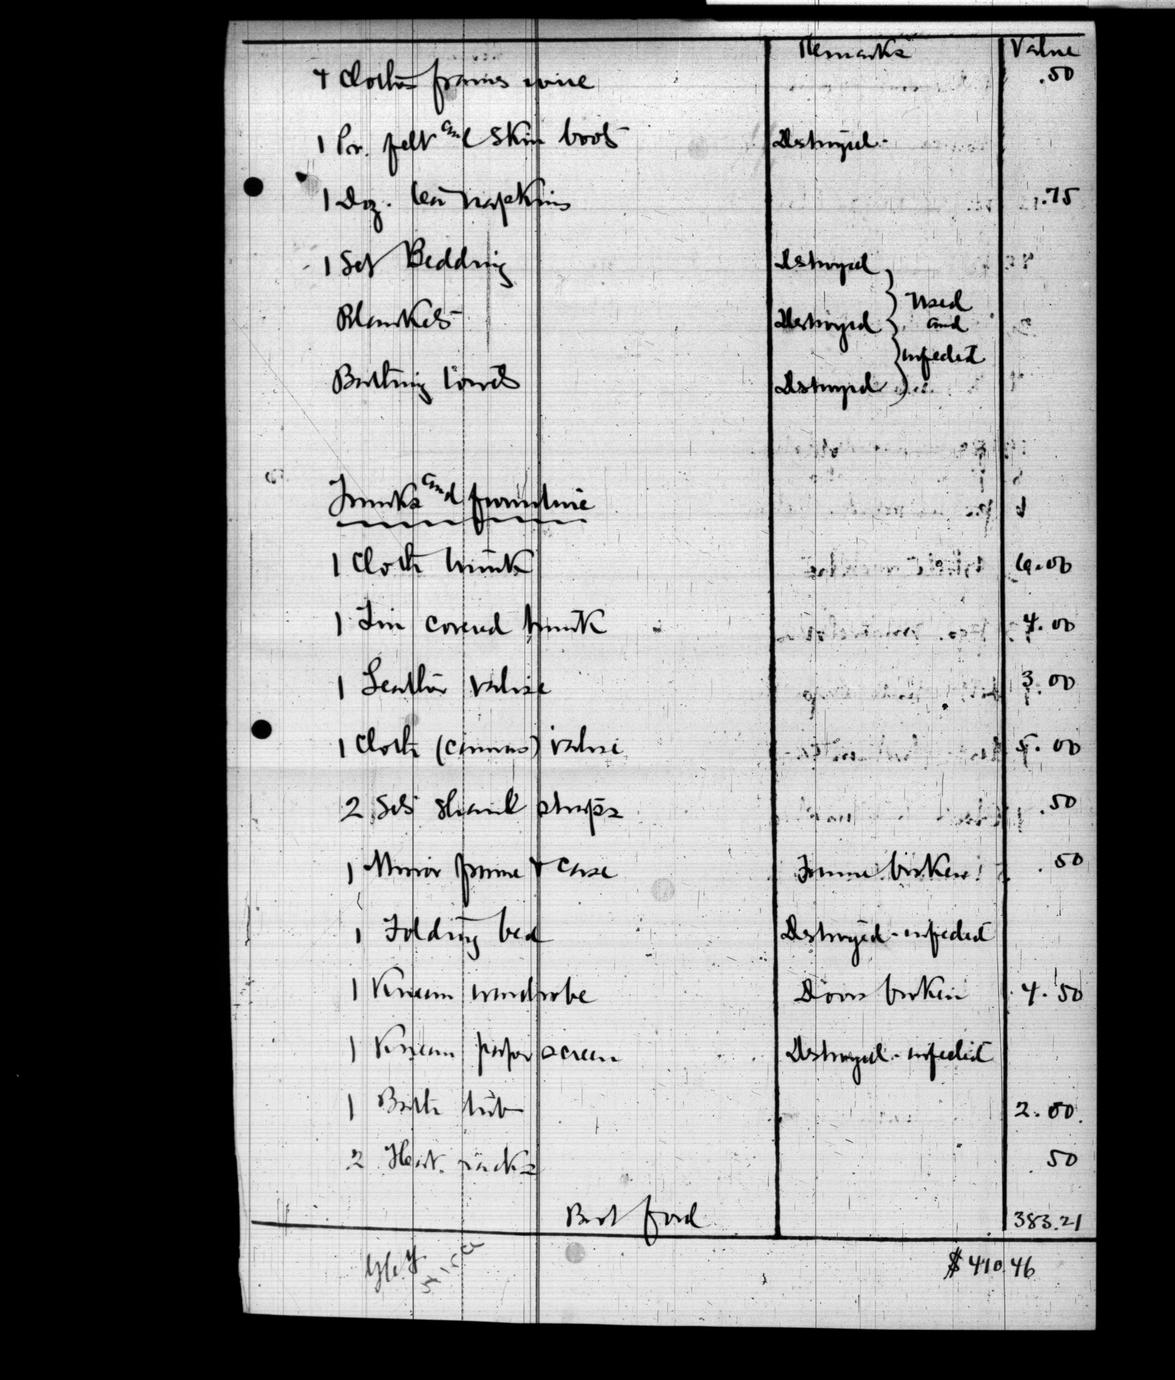 Remarks Value
4 Clothes frames wire .50
1 Pr. felt and skin boots Destroyed-
1 Doz. tea napkins .75
1 Set Bedding Destroyed
Blankets Destroyed
Used and infected
Bathing towels Destroyed
Trunks and furniture
1 Cloth trunk 6.00
1 Tin covered trunk 4.00
1 Leather valise 3.00
1 Cloth (canvas) valise 5.00
2 Sets shawl straps .50
1 Mirror frame & case Frame broken .50
1 Folding bed Destroyed-infected
1 Korean wardrobe Doors broken 4.50
1 Korean paper screen Destroyed-infected
1 Bath tub 2.00
2 Hat racks 50
Brot ford 383.21
$410.46